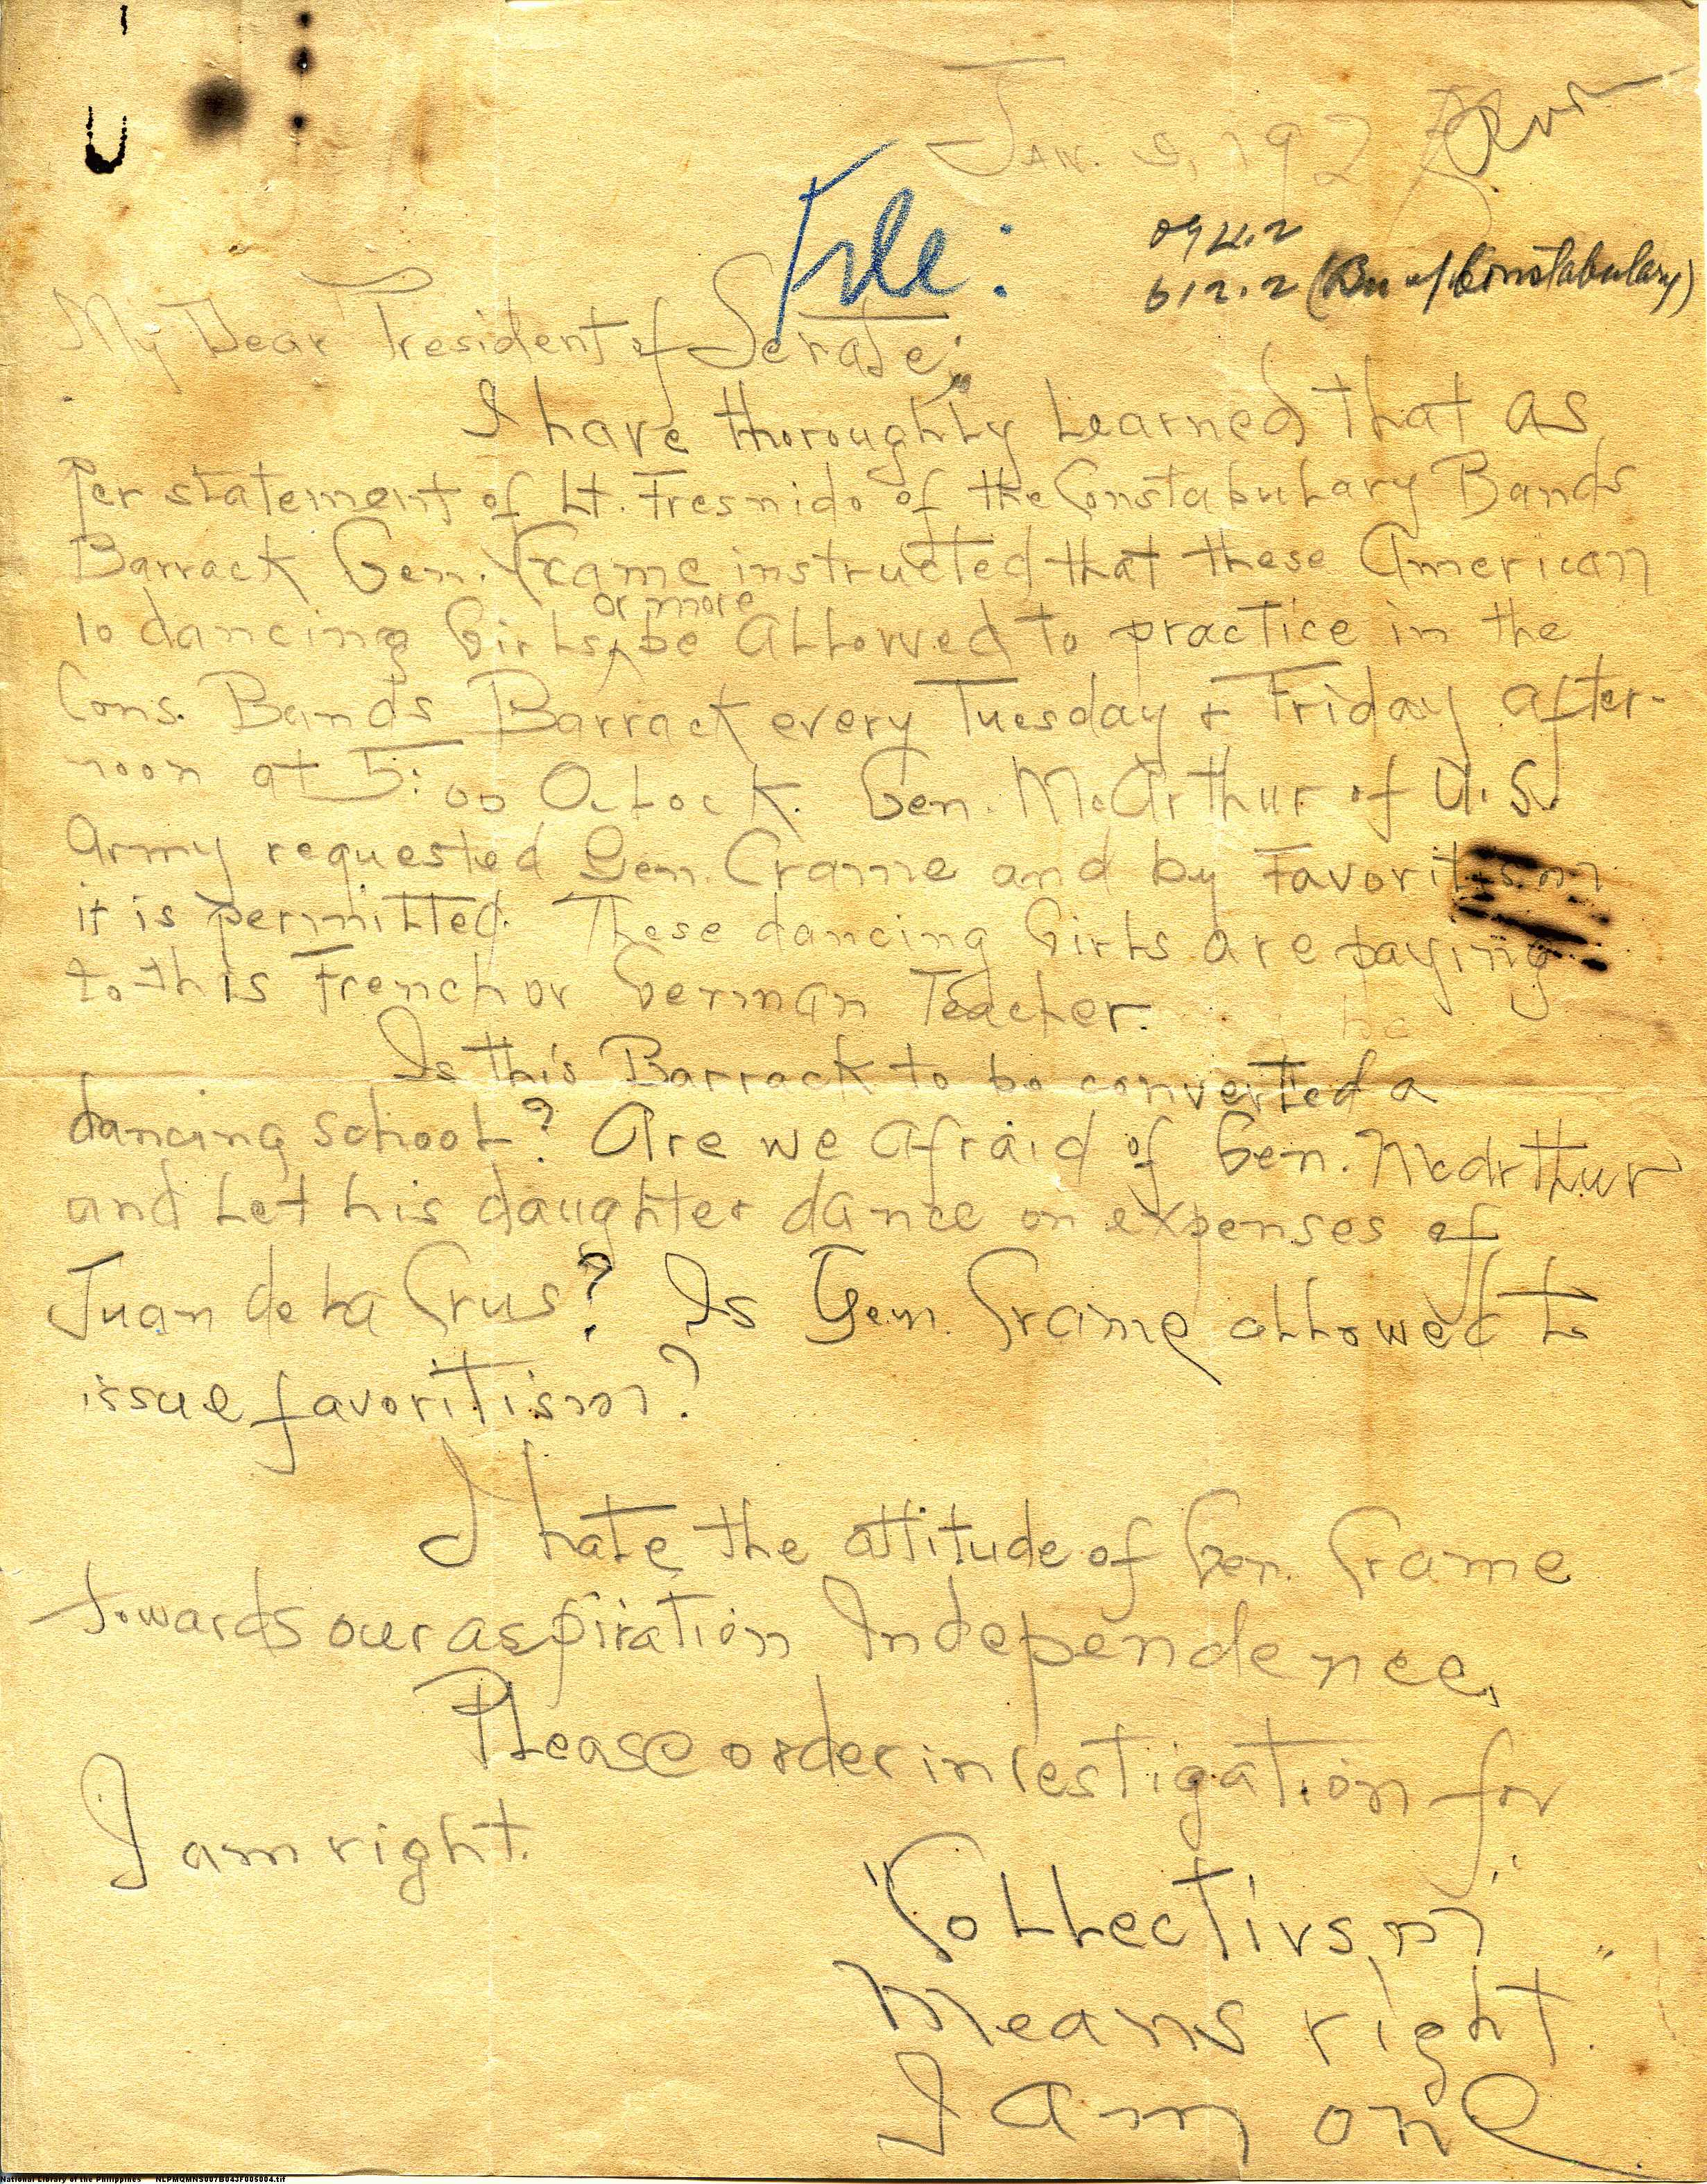 Jan. 192
File:
094.2
612.2 (Bu of Constabulary)
My Dear President of Senate;
I have thoroughly Learned that as
Per statement of Lt. Fresnido of the Constabulary Bands
Barrack Gen. Crame instructed that these American
10 dancing Girls, or more be allowed to practice in the
Cons. Bands Barrack every Tuesday & Friday after-
noon at 5:00 O.clock. Gen. McArthur of U.S.
Army requested Gen. Crame and by Favoritism
it is permitted. These dancing Girls are paying
to this French or German Teacher.
Is this Barrack to be converted a
dancing school? Are we afraid of Gen. McArthur
and Let his daughter dance on expenses of
Juan de La Crus? Is Gen. Crame allowed to
issue favoritism?
I hate the attitude of Gen. Crame
towards our aspiration Independence.
Please order investigation for
I am right.
"Collectivsm"
Means right.
I am one
National Library of the Philippines NLPMQMNS007B043F005004.tif